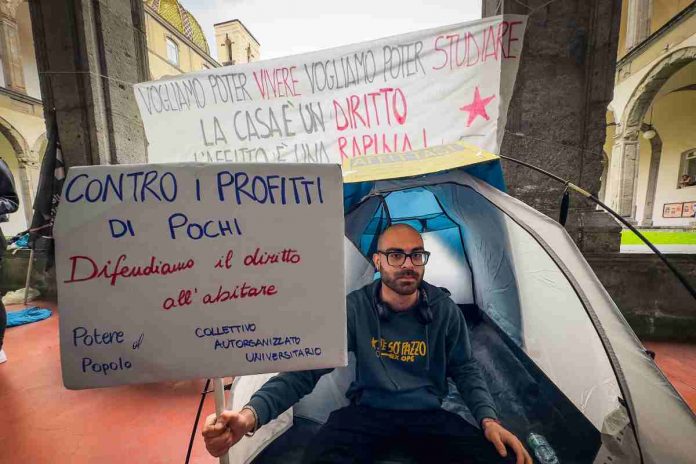 VOGLIAMO POTER VIVERE VOGLIAMO POTER STUDIARE
LA CASA È UN DIRITTO
L'AFFITTO È UNA RAPINA!
CONTRO I PROFITTI
DI POCHI
Difendiamo il diritto
all'abitare
Potere al
Popolo
COLLETTIVO
AUTORGANIZZATO
UNIVERSITARIO
JE SO' PAZZO